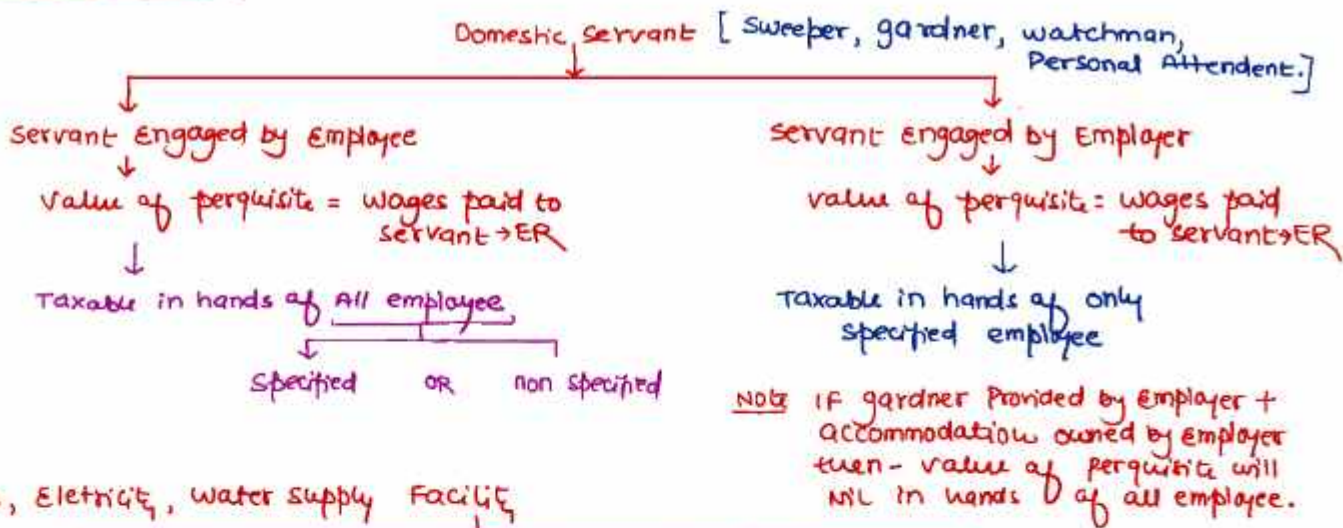 Domestic servant [ sweeper, gardner, watchman,
Personal Attendent.]
servant Engaged by Employee
value of perquisite = wages paid to
servant → ER
Taxable in hands of All employee
specified OR non specified
servant engaged by Employer
value of perquisite = wages paid
to servant → ER
Taxable in hands of only
specified employee
Note IF gardner Provided by employer +
accommodation owned by employer
then - value of perquisite will
NIL in hands of all employee.
, Eletricity, water supply Facility